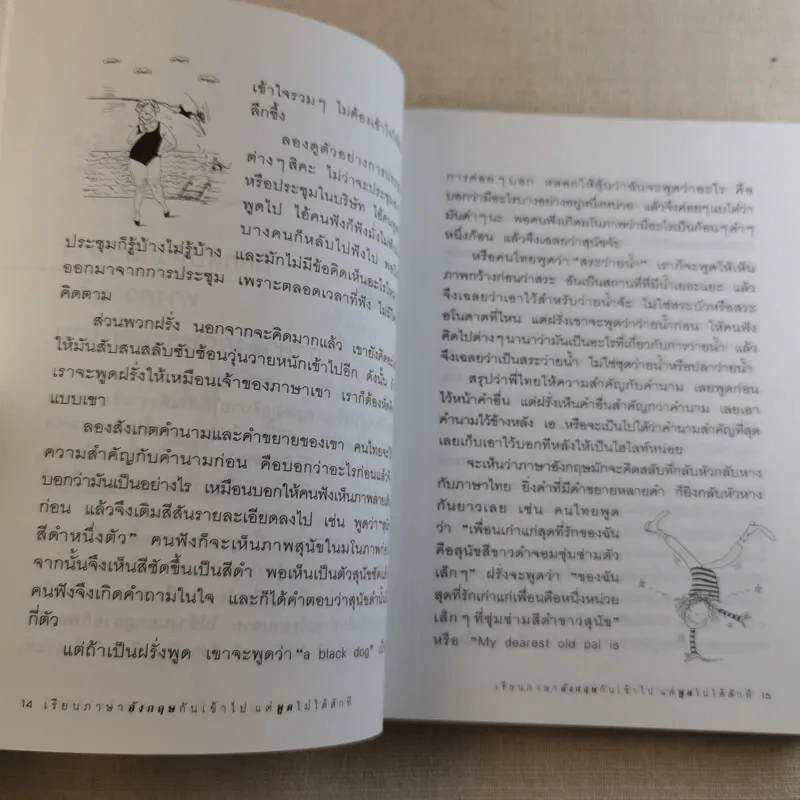 เข้าใจรวมๆ ไม่ต้องเข้าใจ
ลึกซึ้ง
ลองดูตัวอย่างการประชุม
ต่างๆสิคะ ไม่ว่าจะประชุม
หรือประชุมในบริษัท ไอ้คนพูดก็
พูดไป ไอ้คนฟังก็ฟังมั่งไม่ฟัง
บางคนก็หลับไปฟังไป
ประชุมก็รู้บ้างไม่รู้บ้าง และมักไม่มีข้อคิดเห็นอะไร
ออกมาจากการประชุม เพราะตลอดเวลาที่ฟัง ไม่มี
คิดตาม
ส่วนพวกฝรั่ง นอกจากจะคิดมากแล้ว เขายังคิด
ให้มันสับสนสลับซับซ้อนวุ่นวายหนักเข้าไปอีก ดังนั้น
เราจะพูดฝรั่งให้เหมือนเจ้าของภาษาเขา เราก็ต้องหัด
แบบเขา
ลองสังเกตคำนามและคำขยายของเขา คนไทยจะ
ความสำคัญกับคำนามก่อน คือบอกว่าอะไรก่อนแล้ว
บอกว่ามันเป็นอย่างไร เหมือนบอกให้คนฟังเห็นภาพลายเส้น
ก่อน แล้วจึงเติมสีสันรายละเอียดลงไป เช่น พูดว่า
สีดำหนึ่งตัว” คนฟังก็จะเห็นภาพสุนัขในมโนภาพก่อน
จากนั้นจึงเห็นสีชัดขึ้นเป็นสีดำ พอเห็นเป็นตัวสุนัขชัด
คนฟังจึงเกิดคำถามในใจ และก็ได้คำตอบว่าสุนัขดำนั้น
กี่ตัว
แต่ถ้าเป็นฝรั่งพูด เขาจะพูดว่า “a black dog” เป็น
14 เรียนภาษาอังกฤษกันเข้าไป แต่พูดไม่ได้สักที
การค่อยๆบอก หลอกให้ลุ้นว่าฉันจะพูดว่าอะไร คือ
บอกว่ามีอะไรบางอย่างอยู่หนึ่งหน่วย แล้วจึงค่อยๆแบไต๋ว่า
มันดำๆนะ พอคนฟังเกิดมโนภาพว่ามีอะไรเป็นก้อนๆดำๆ
หนึ่งก้อน แล้วจึงเฉลยว่าสุนัขจ้ะ
หรือคนไทยพูดว่า “สระว่ายน้ำ” เราก็จะพูดให้เห็น
ภาพกว้างก่อนว่าสระ อันเป็นสถานที่ที่มีน้ำเยอะแยะ แล้ว
จึงเฉลยว่าเอาไว้สำหรับว่ายน้ำจ้ะ ไม่ใช่สระบัวหรือสระ
อโนดาตที่ไหน แต่ฝรั่งเขาจะพูดว่าว่ายน้ำก่อน ให้คนฟัง
คิดไปต่างๆนานาว่ามันเป็นอะไรที่เกี่ยวกับการว่ายน้ำ แล้ว
จึงเฉลยว่าเป็นสระว่ายน้ำ ไม่ใช่ชุดว่ายน้ำหรือปลาว่ายน้ำ
สรุปว่าพี่ไทยให้ความสำคัญกับคำนาม เลยพูดก่อน
ไว้หน้าคำอื่น แต่ฝรั่งเห็นคำอื่นสำคัญกว่าคำนาม เลยเอา
คำนามไว้ข้างหลัง เอ...หรือจะเป็นไปได้ว่าคำนามสำคัญที่สุด
เลยเก็บเอาไว้บอกทีหลังให้เป็นไฮไลท์หน่อย
จะเห็นว่าภาษาอังกฤษมักจะคิดสลับที่กลับหัวกลับหาง
กับภาษาไทย ยิ่งคำที่มีคำขยายหลายคำ ก็ยิ่งกลับหัวหาง
กันยาวเลย เช่น คนไทยพูด
ว่า “เพื่อนเก่าแก่สุดที่รักของฉัน
คือสุนัขสีขาวดำจอมซุ่มซ่ามตัว
เล็กๆ” ฝรั่งจะพูดว่า “ของฉัน
สุดที่รักเก่าแก่เพื่อนคือหนึ่งหน่วย
เล็กๆที่ซุ่มซ่ามสีดำขาวสุนัข”
หรือ “My dearest old pal is
เรียนภาษาอังกฤษกันเข้าไป แต่พูดไม่ได้สักที 15